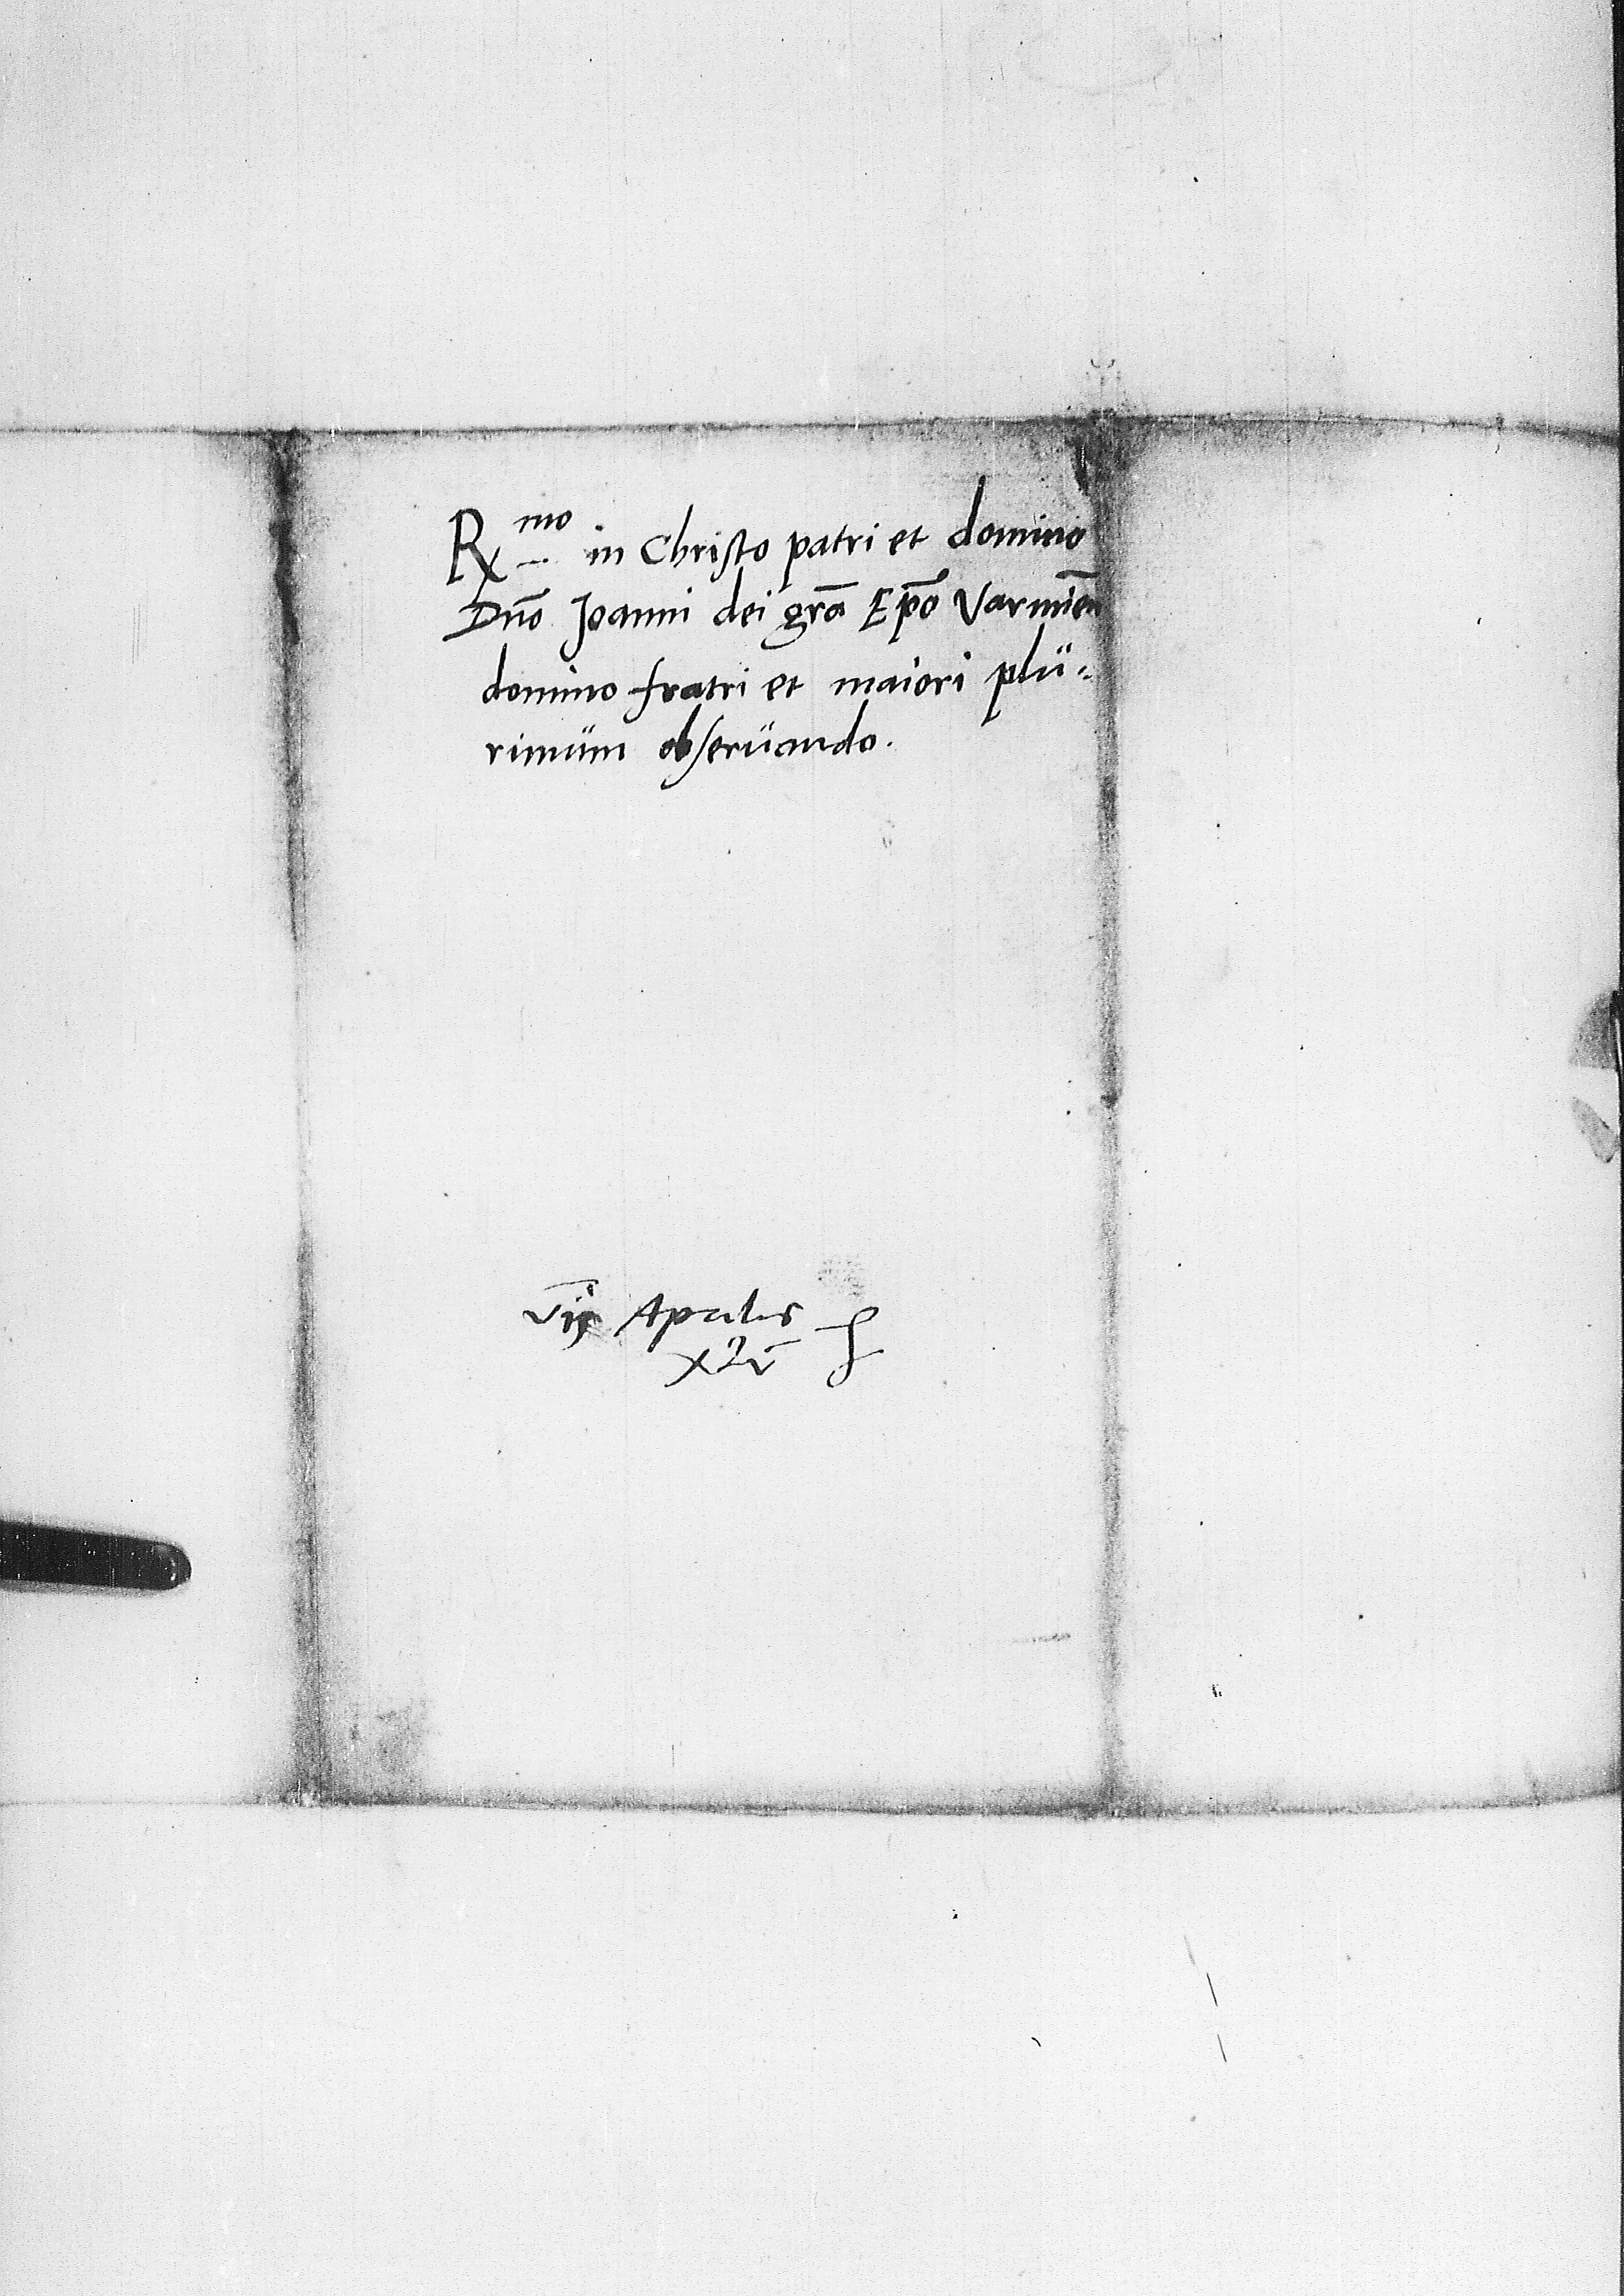 Rmo in Christo patri et domino
Dno Joanni dei gra Epo Varmien
domino fratri et maiori plü-
rimüm obserüando.
vij Aprilis
xlv